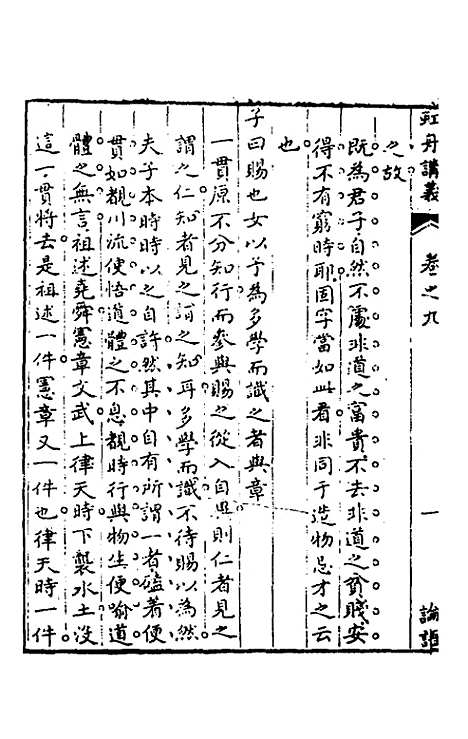 虹舟講義 卷之九 一 論語
之故
既為君子自然不處非道之富貴不去非道之貧賤安
得不有窮時耶固字當如此看非同于造物忌才之云
也
子曰賜也女以予為多學而識之者與章
一貫原不分知行而參與賜之從入自異則仁者見之
謂之仁知者見之謂之知耳多學而識不待賜以為然
夫子本時時以之自許然其中自有所謂一者磕著便
貫如觀川流便悟道體之不息觀時行與物生便喻道
體之無言祖述堯舜憲章文武上律天時下襲水土沒
這一貫將去是祖述一件憲章又一件也律天時一件